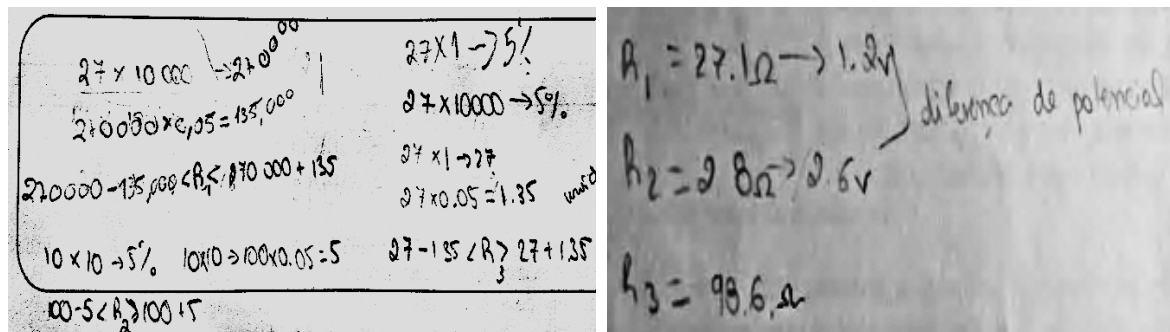 27 x 10 000 → 270000
270000 x 0,05 = 135,000
270000 - 135,000 < R1 < 270 000 + 135
10 x 10 → 5% 10x10 → 100x0.05 = 5
100-5 < R2 > 100 + 5
27 x 1 → 5%
27 x 10000 → 5%
27 x 1 → 27
27 x 0.05 = 1.35
27 - 1.35 < R3 > 27 + 1.35
R1 = 27.1Ω → 1.2v
diferença de potencial
R2 = 28Ω → 2.6v
R3 = 98.6Ω